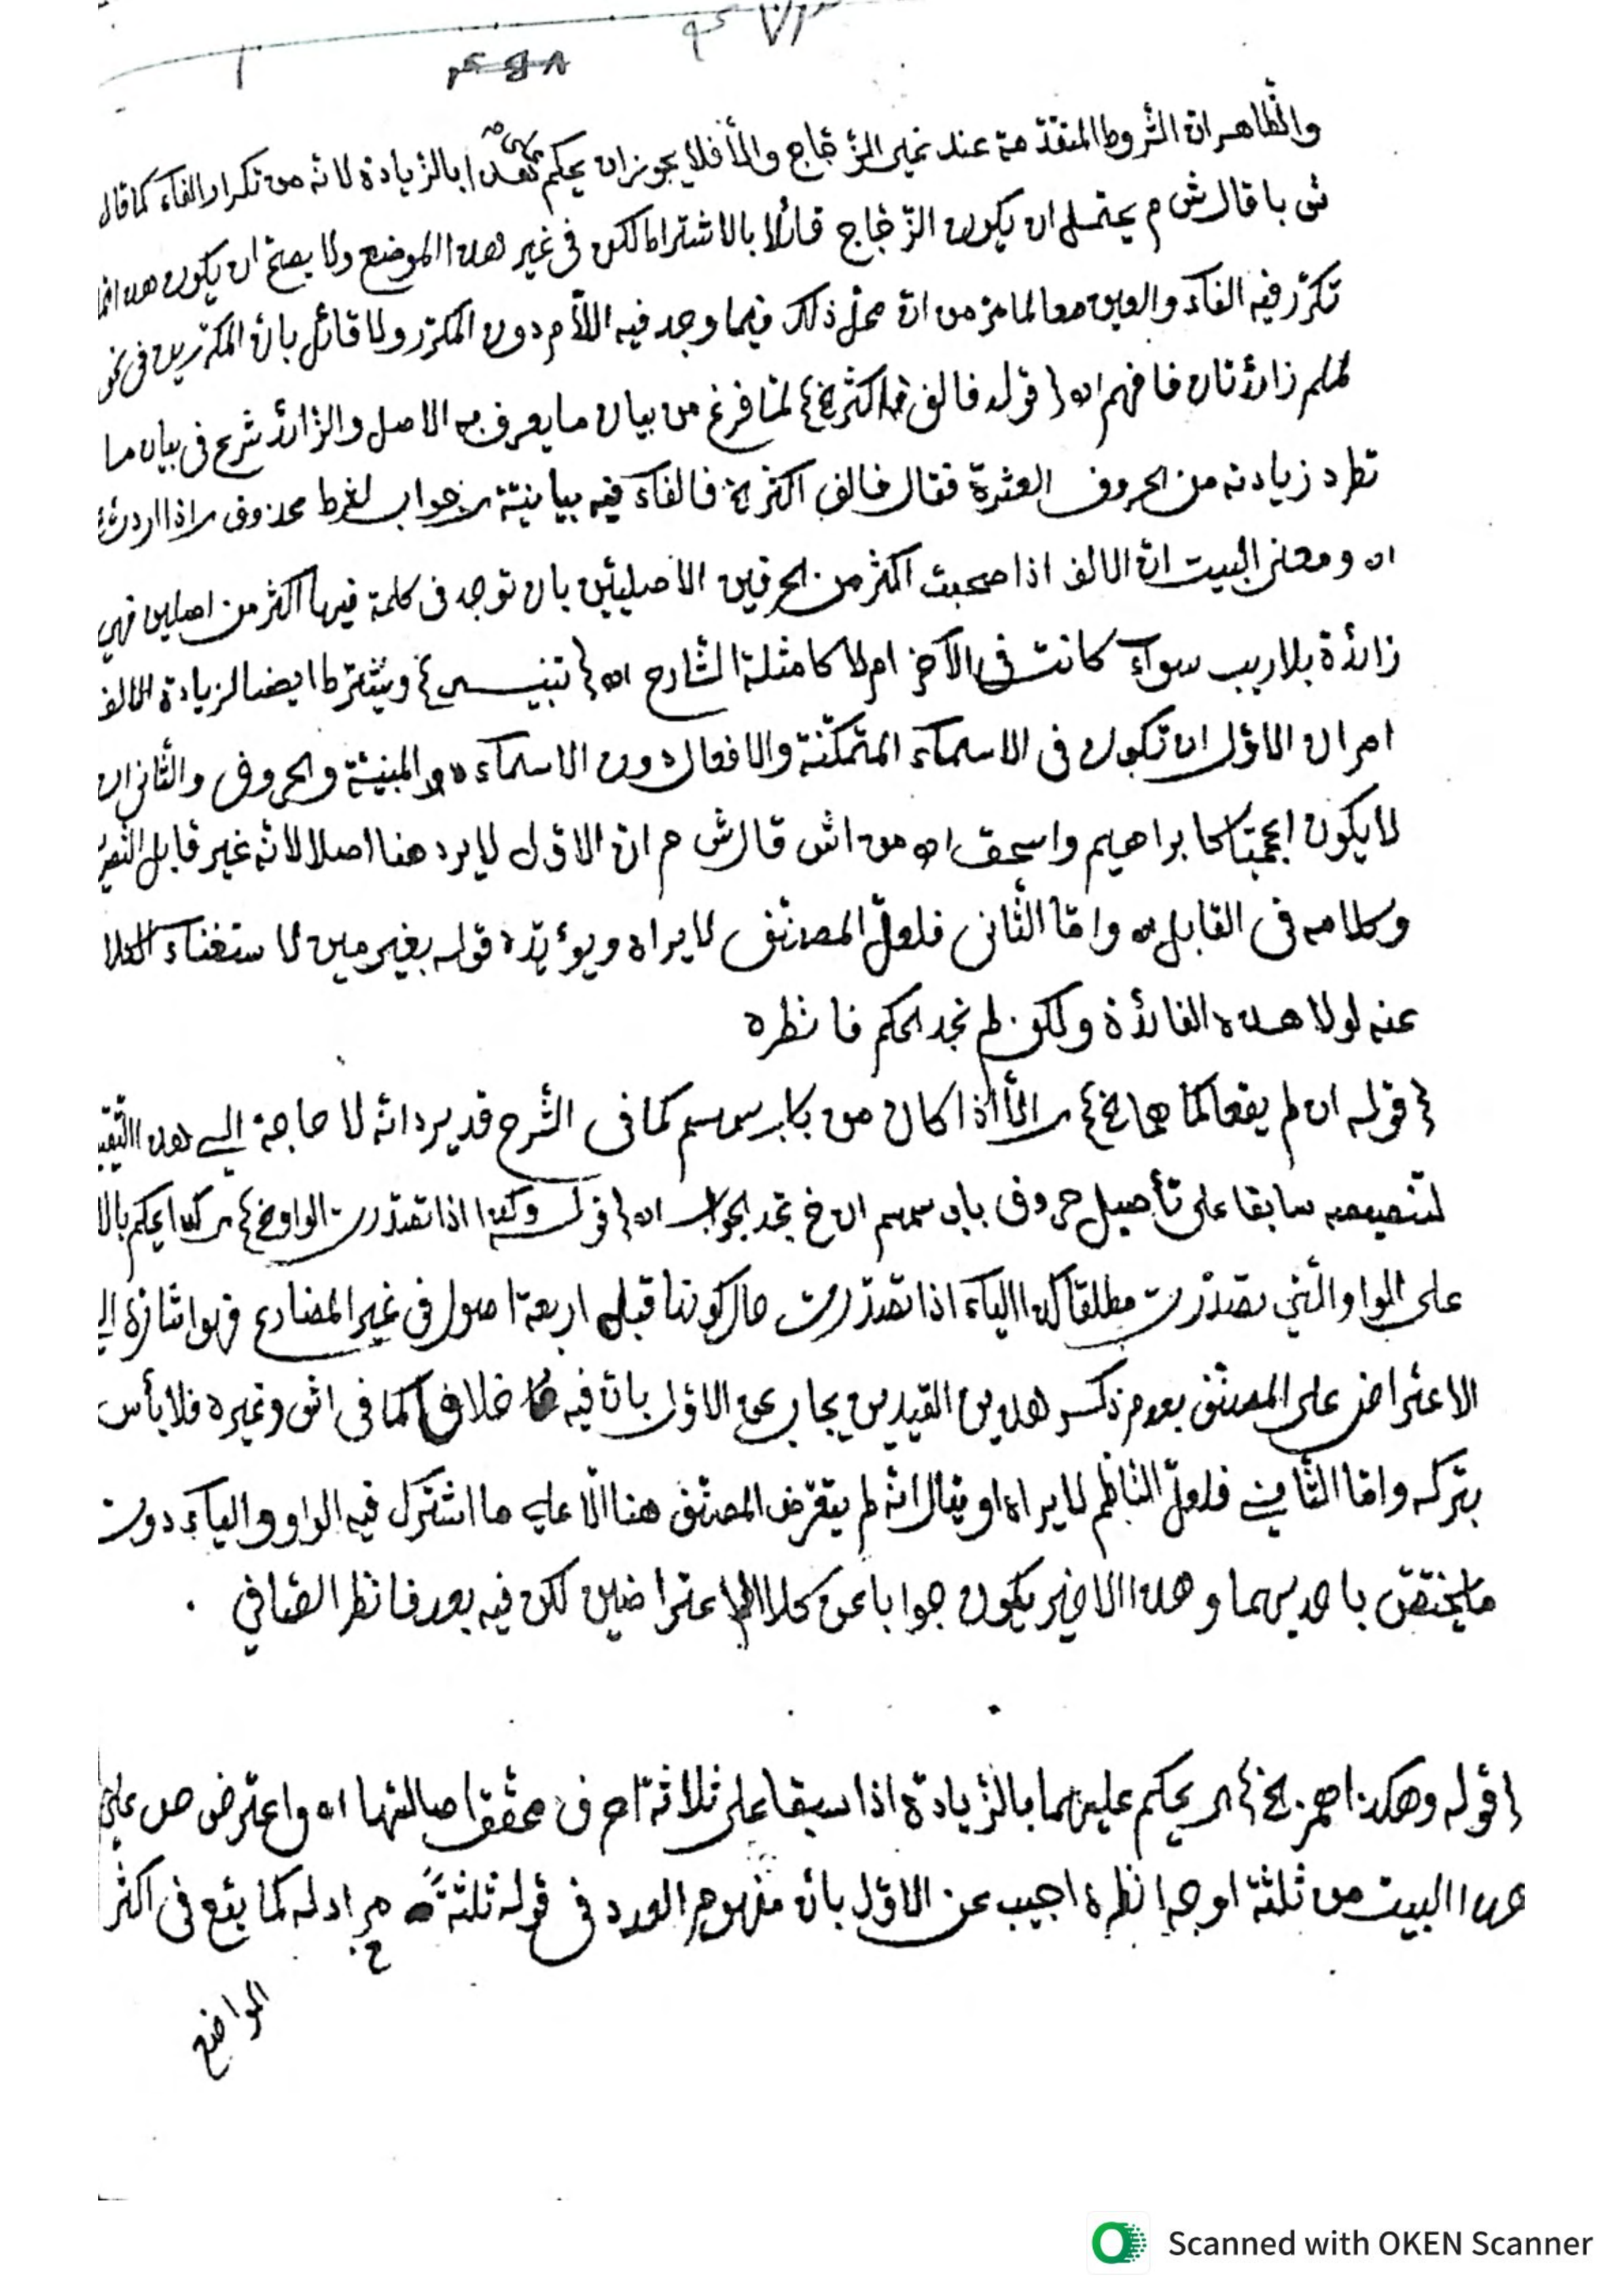 والظاهر ان الشروط المتقدمة عند غير الزجاج والا فلا يجوز ان يحكم بالزيادة لانه من تكرار الفاء كما قال
ش م يحتمل ان يكون الزجاج قائلا بالاشتراط لكن في غير هذا الموضع ولا يصح ان يكون هذا
تكرر فيه الفاء والعين معا لما مر من ان محل ذلك فيما وجد فيه اللام دون المكرر ولا قائل بان المكررين في نحو
لملم زائدتان فافهم اه { قوله فالف اكثر الخ } لما فرغ من بيان ما يعرف به الاصل والزائد شرع في بيان ما
تطرد زيادته من الحروف العشرة فقال فالف اكثر الخ فالفاء فيه بيانية جواب لشرط محذوف اذا اردت
اه ومعنى البيت ان الالف اذا صحبت اكثر من الحرفين الاصليين بان توجد في كلمة فيها اكثر من اصلين فهي
زائدة بلا ريب سواء كانت في الآخر ام لا كامثلة الشارح اه { تنبيه } ويشترط ايضا لزيادة الالف
امران الاول ان تكون في الاسماء المتمكنة والافعال دون الاسماء المبنية والحروف والثاني ان
لا يكون اعجميا كابراهيم واسحق اه من اش قال ش م ان الاول لا يرد هنا اصلا لانه غير قابل
وكلامه في القابل واما الثاني فلعل المصنف لا يراه ويؤيده قوله بغير مين لاستغناء
عنه لولا هذه الفائدة ولكن لم نجد الحكم فانظره
{ قوله ان لم يقعا كما هما الخ } اذا كان من باب سمسم كما في الشرح قد يرد انه لا حاجة الى هذا
لتنصيصه سابقا على تأصيل حروف باب سمسم الخ تجد الجواب اه { قوله وكذا اذا تصدرت الواو الخ } كذا يحكم
على الواو التي تصدرت مطلقا كذا الياء اذا تصدرت حال كونها قبل اربعة اصول في غير المضارع فهو اشارة الى
الاعتراض على المصنف بعدم ذكر هذين القيدين يجاب عن الاول بان فيه خلاف كما في اش وغيره فلا بأس
بتركه واما الثاني فلعل الناظم لا يراه او يقال انه لم يتعرض المصنف هنا الا على ما اشترك فيه الواو والياء دون
ما يختص باحديهما وهذا الاخير يكون جوابا عن كلا الاعتراضين لكن فيه بعد فانظر الصافي .
{ قوله وهكذا همز الخ } يحكم عليهما بالزيادة اذا سبقا على ثلاثة احرف محقق اصالتها اه واعترض ص على
هذا البيت من ثلثة اوجه انظره اجيب عن الاول بان مفهوم العدد في قوله ثلثة مراد له كما يقع في اكثر
المواضع
Scanned with OKEN Scanner